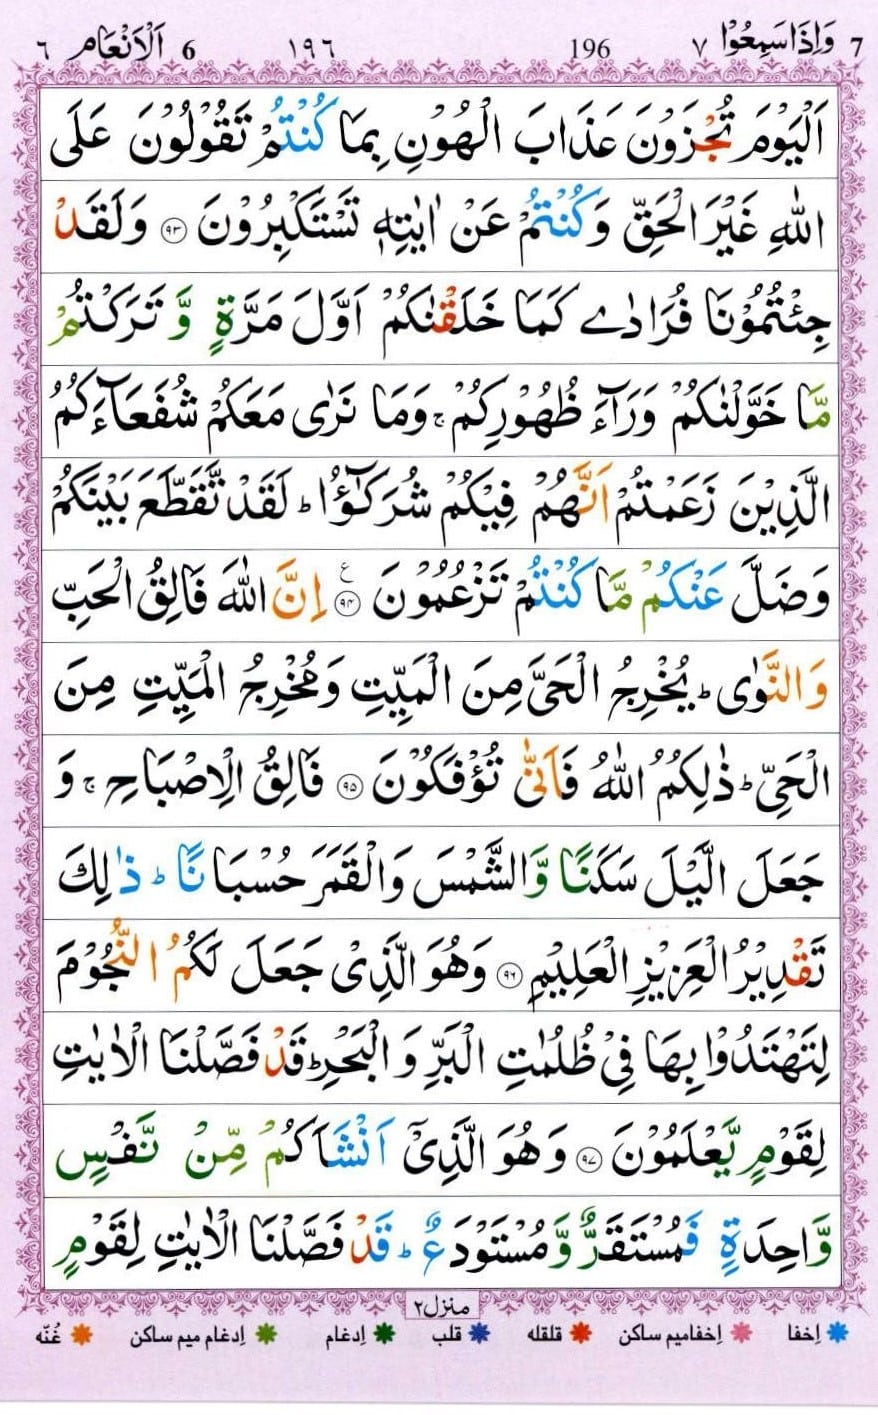 7 وَاِذَا سَمِعُوْا ٧ 196 ١٩٦ 6 اَلْاَنْعَام ٦
اَلْيَوْمَ تُجْزَوْنَ عَذَابَ الْهُوْنِ بِمَا كُنْتُمْ تَقُوْلُوْنَ عَلَى
اللّٰهِ غَيْرَ الْحَقِّ وَكُنْتُمْ عَنْ اٰيٰتِهٖ تَسْتَكْبِرُوْنَ ۝٩٣ وَلَقَدْ
جِئْتُمُوْنَا فُرَادٰے كَمَا خَلَقْنٰكُمْ اَوَّلَ مَرَّةٍ وَّ تَرَكْتُمْ
مَّا خَوَّلْنٰكُمْ وَرَآءَ ظُهُوْرِكُمْ ۚ وَمَا نَرٰى مَعَكُمْ شُفَعَآءَكُمُ
الَّذِيْنَ زَعَمْتُمْ اَنَّهُمْ فِيْكُمْ شُرَكٰٓؤُا ؕ لَقَدْ تَّقَطَّعَ بَيْنَكُمْ
وَضَلَّ عَنْكُمْ مَّا كُنْتُمْ تَزْعُمُوْنَ ۝٩٤ ع اِنَّ اللّٰهَ فَالِقُ الْحَبِّ
وَالنَّوٰى ؕ يُخْرِجُ الْحَىَّ مِنَ الْمَيِّتِ وَمُخْرِجُ الْمَيِّتِ مِنَ
الْحَىِّ ؕ ذٰلِكُمُ اللّٰهُ فَاَنّٰى تُؤْفَكُوْنَ ۝٩٥ فَالِقُ الْاِصْبَاحِ ۚ وَ
جَعَلَ الَّيْلَ سَكَنًا وَّالشَّمْسَ وَالْقَمَرَ حُسْبَانًا ؕ ذٰلِكَ
تَقْدِيْرُ الْعَزِيْزِ الْعَلِيْمِ ۝٩٦ وَهُوَ الَّذِىْ جَعَلَ لَكُمُ النُّجُوْمَ
لِتَهْتَدُوْا بِهَا فِىْ ظُلُمٰتِ الْبَرِّ وَالْبَحْرِ ؕ قَدْ فَصَّلْنَا الْاٰيٰتِ
لِقَوْمٍ يَّعْلَمُوْنَ ۝٩٧ وَهُوَ الَّذِىْٓ اَنْشَاَكُمْ مِّنْ نَّفْسٍ
وَّاحِدَةٍ فَمُسْتَقَرٌّ وَّمُسْتَوْدَعٌ ؕ قَدْ فَصَّلْنَا الْاٰيٰتِ لِقَوْمٍ
منزل٢
اِخفا اِخفامیم ساکن قلقله قلب اِدغام اِدغام میم ساکن غُنّه